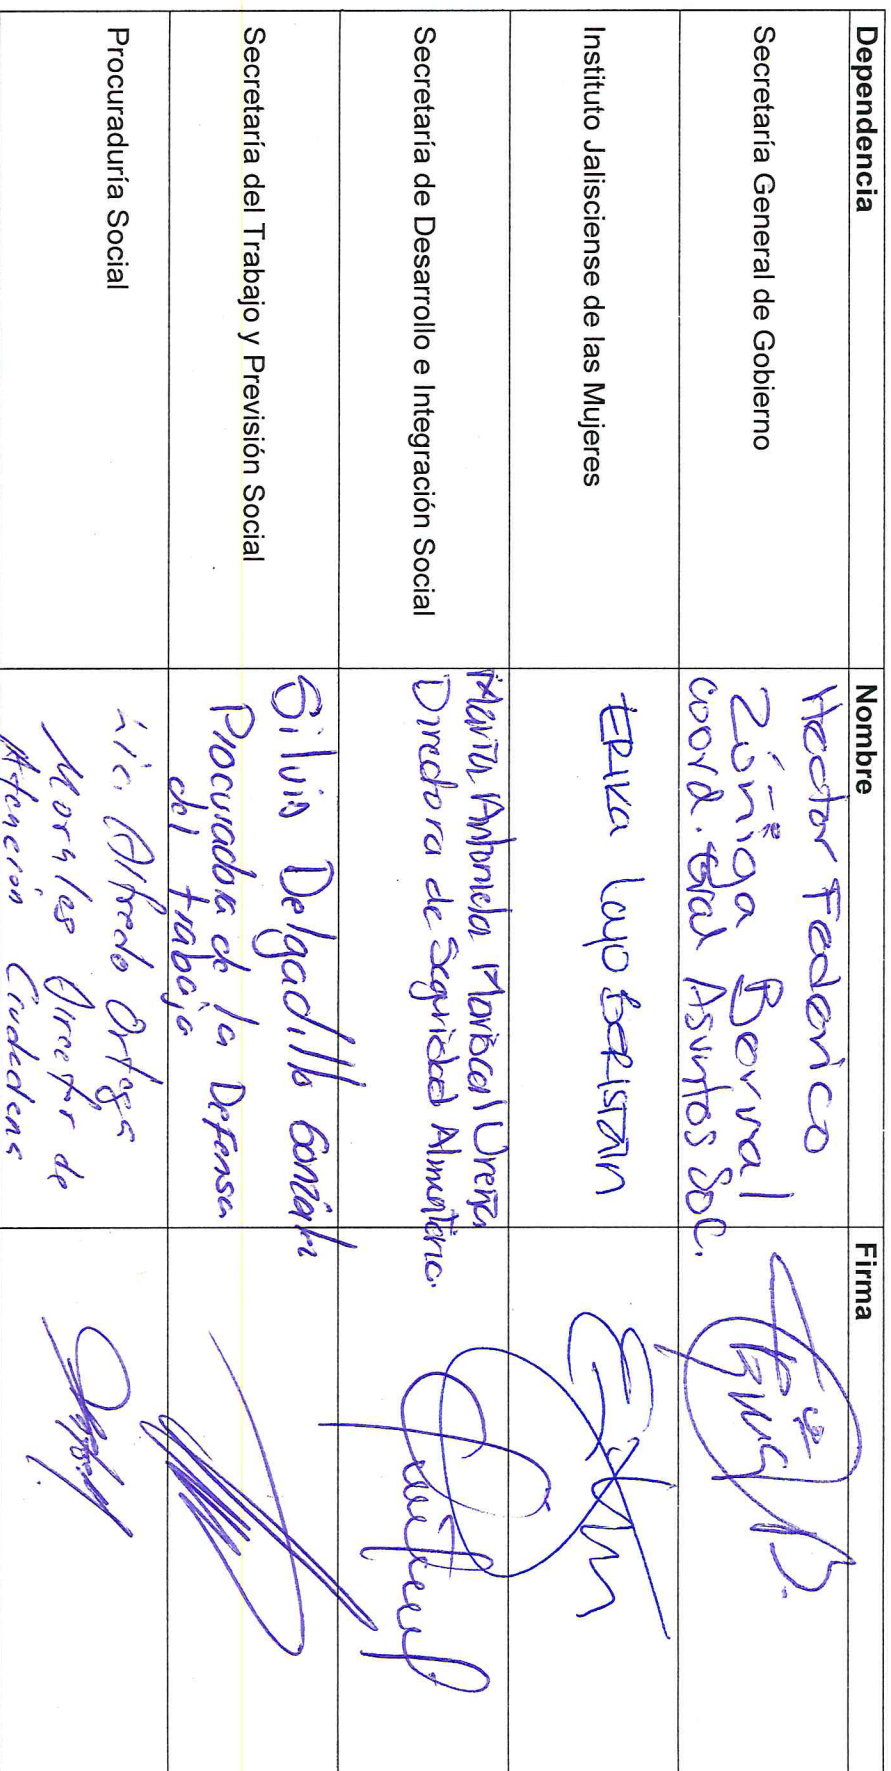 Dependencia Nombre Firma
Secretaría General de Gobierno
Hector Federico
Zúñiga Bernal
coord. Gral Asuntos Soc.
Instituto Jalisciense de las Mujeres
ERIKA Loyo BERISTÁIN
Secretaría de Desarrollo e Integración Social
María Antonieta Mariscal Ureña
Directora de Seguridad Alimentaria.
Secretaría del Trabajo y Previsión Social
Silvia Delgadillo González
Procuradora de la Defensa
del trabajo
Procuraduría Social
Lic. Alfredo Ortega
Morales Director de
Atención Ciudadana